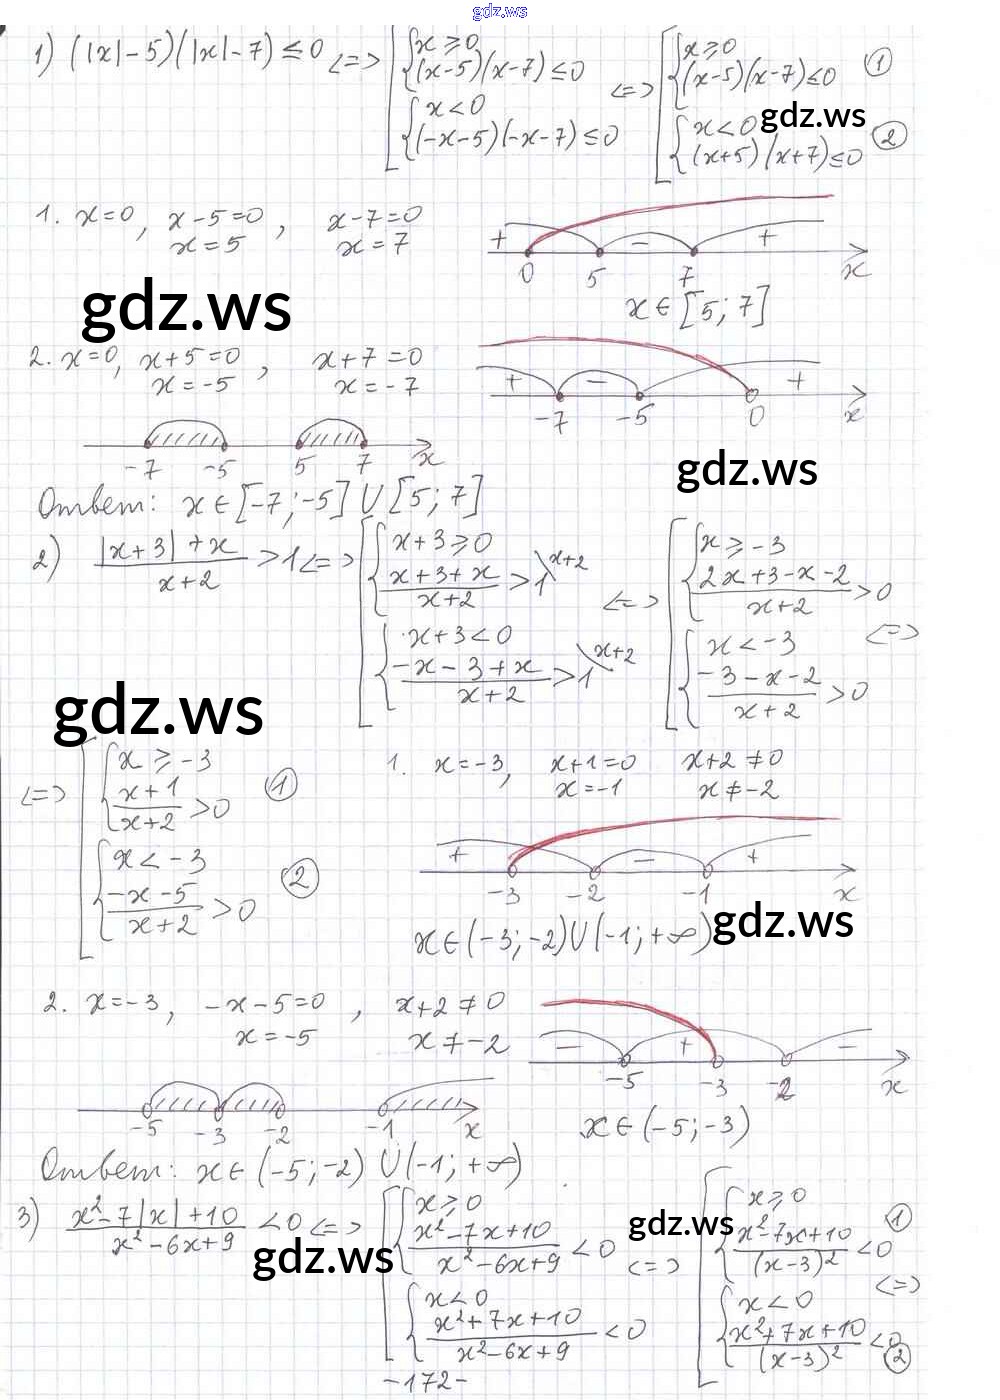 gdz.ws
1) (|x|-5)(|x|-7) ≤ 0 <=> [ { x ≥ 0
(x-5)(x-7) ≤ 0
{ x < 0
(-x-5)(-x-7) ≤ 0
<=> [ { x ≥ 0
(x-5)(x-7) ≤ 0 ①
{ x < 0
(x+5)(x+7) ≤ 0 ②
gdz.ws
1. x=0, x-5=0, x-7=0
x=5 x=7
+ - +
0 5 7 x
x ∈ [5; 7]
gdz.ws
2. x=0, x+5=0, x+7=0
x=-5 x=-7
+ - +
-7 -5 0 x
-7 -5 5 7 x
gdz.ws
Ответ: x ∈ [-7; -5] U [5; 7]
2) (|x+3|+x)/(x+2) > 1 <=> [ { x+3 ≥ 0
(x+3+x)/(x+2) > 1 \x+2
{ x+3 < 0
(-x-3+x)/(x+2) > 1 \x+2
<=> [ { x ≥ -3
(2x+3-x-2)/(x+2) > 0
{ x < -3
(-3-x-2)/(x+2) > 0
<=>
gdz.ws
<=> [ { x ≥ -3
(x+1)/(x+2) > 0 ①
{ x < -3
(-x-5)/(x+2) > 0 ②
1. x=-3, x+1=0 x+2≠0
x=-1 x≠-2
+ - +
-3 -2 -1 x
x ∈ (-3; -2) U (-1; +∞)
gdz.ws
2. x=-3, -x-5=0, x+2≠0
x=-5 x≠-2
- + -
-5 -3 -2 x
x ∈ (-5; -3)
-5 -3 -2 -1 x
Ответ: x ∈ (-5; -2) U (-1; +∞)
3) (x²-7|x|+10)/(x²-6x+9) < 0 <=> [ { x ≥ 0
(x²-7x+10)/(x²-6x+9) < 0
{ x < 0
(x²+7x+10)/(x²-6x+9) < 0
<=> [ { x ≥ 0
(x²-7x+10)/(x-3)² < 0 ①
{ x < 0
(x²+7x+10)/(x-3)² < 0 ②
<=>
gdz.ws
gdz.ws
-172-